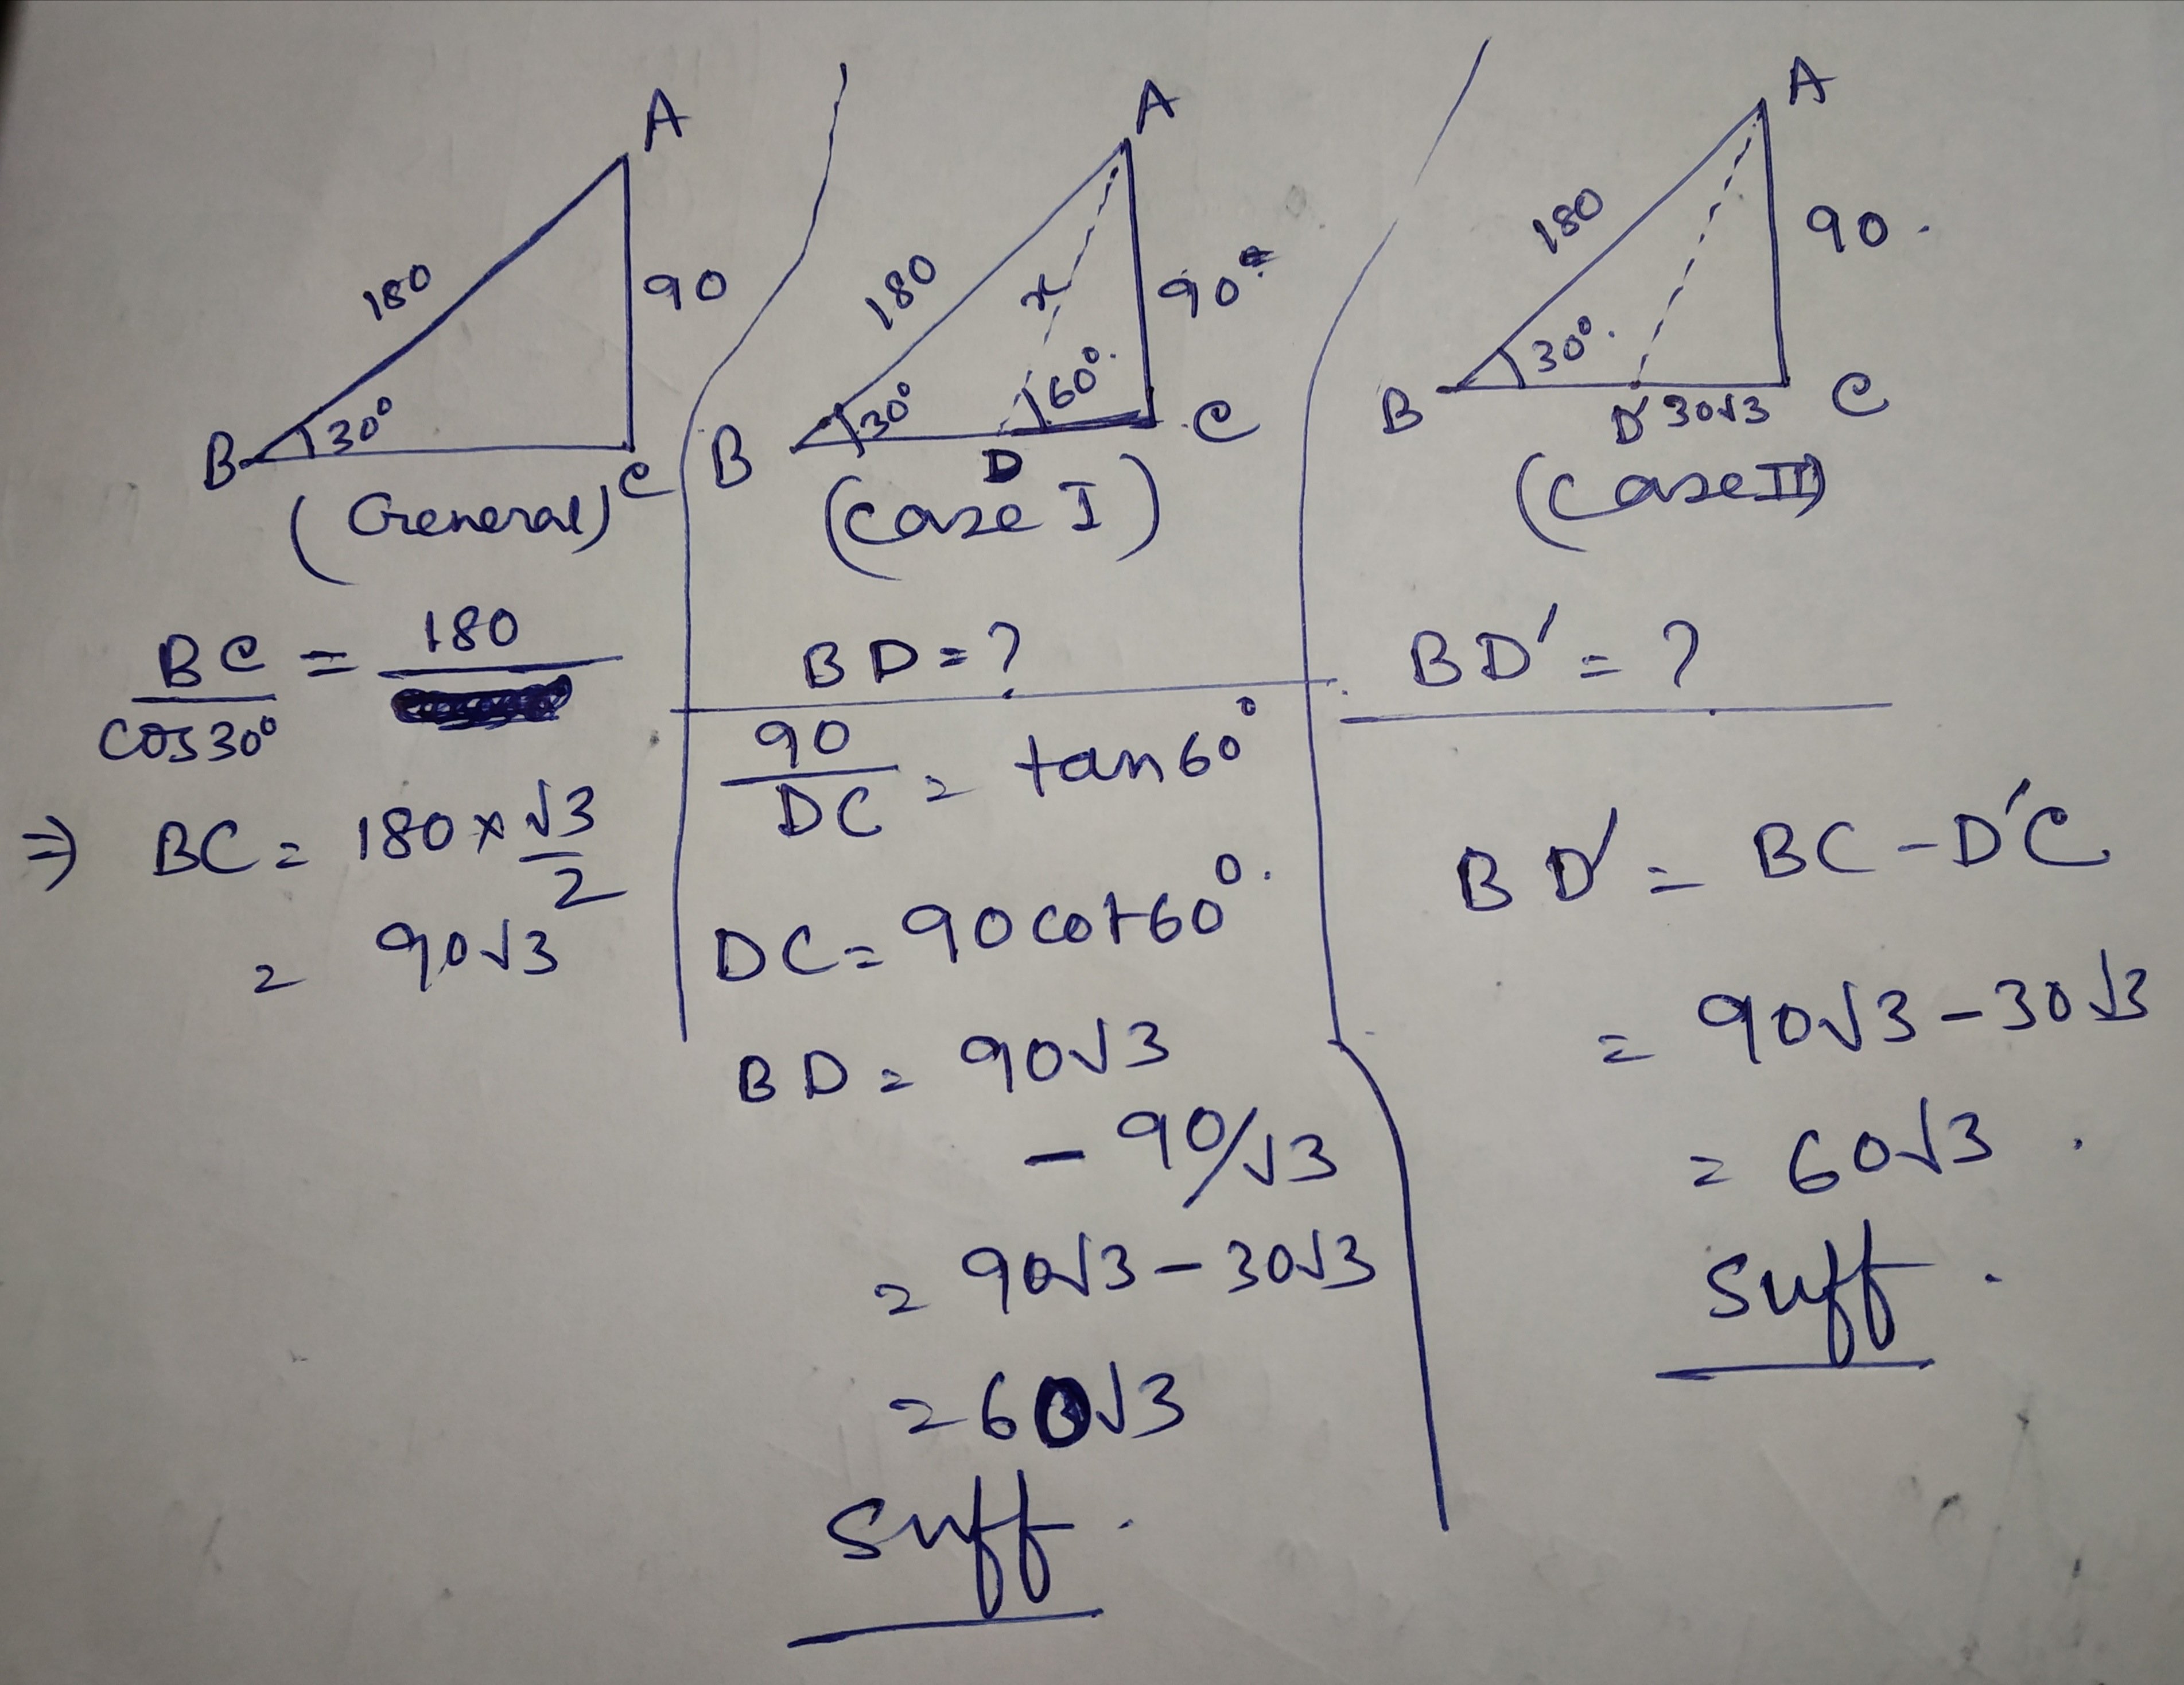 A
180
90
30°
B
C
(General)
BC/cos30° = 180/
⇒ BC = 180 × √3/2
= 90√3
A
180
x
90°
30°
60°
B
D
C
(Case I)
BD = ?
90/DC = tan60°
DC = 90 cot60°.
BD = 90√3
- 90/√3
= 90√3 - 30√3
= 60√3
Suff.
A
180
90.
30°.
B
D' 30√3
C
(Case II)
BD' = ?
BD' = BC - D'C
= 90√3 - 30√3
= 60√3.
Suff.